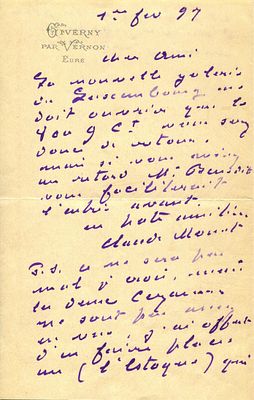 GIVERNY
PAR VERNON
EURE
1er fev 97
cher ami
La nouvelle galerie
du Luxembourg ne
doit ouvrir que le
400 9 Ct. vous
donc de retour,
mais si vous
un retard M. Benedite
vous faciliterait
l'entrée avant.
en hate amitiés
Claude Monet
P.S. ce ne sera pas
mal je crois, mais
les deux Cezannes
ne sont pas
en vue; j'ai offert
d'en faire placer
un (l'Estaque) qui